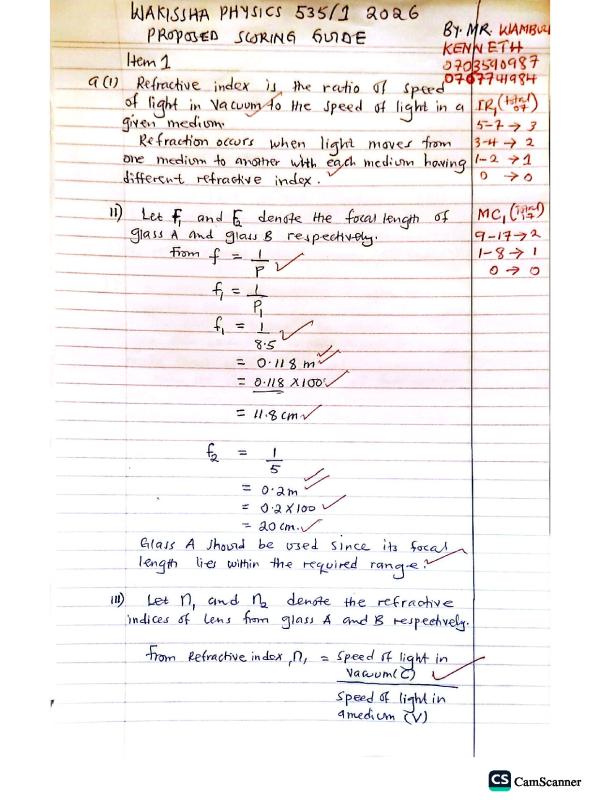 WAKISSHA PHYSICS 535/1 2026
PROPOSED SCORING GUIDE
BY: MR. WAMBUZI
KENNETH
0703590987
0767741984
Item 1
a(i) Refractive index is the ratio of speed
of light in vacuum to the speed of light in a
given medium.
Refraction occurs when light moves from
one medium to another with each medium having
different refractive index.
IR1 (total 07)
5-7 → 3
3-4 → 2
1-2 → 1
0 → 0
ii) Let F1 and F2 denote the focal length of
glass A and glass B respectively.
MC1 (total 17)
9-17 → 2
1-8 → 1
0 → 0
From f = 1/P
f1 = 1/P1
f1 = 1/8.5
= 0.118 m
= 0.118 x100
= 11.8 cm
f2 = 1/5
= 0.2m
= 0.2 x 100
= 20 cm.
Glass A should be used since its focal
length lies within the required range.
iii) Let n1 and n2 denote the refractive
indices of lens from glass A and B respectively.
From Refractive index, n1 = Speed of light in
vacuum (C)
Speed of light in
a medium (V)
CS CamScanner